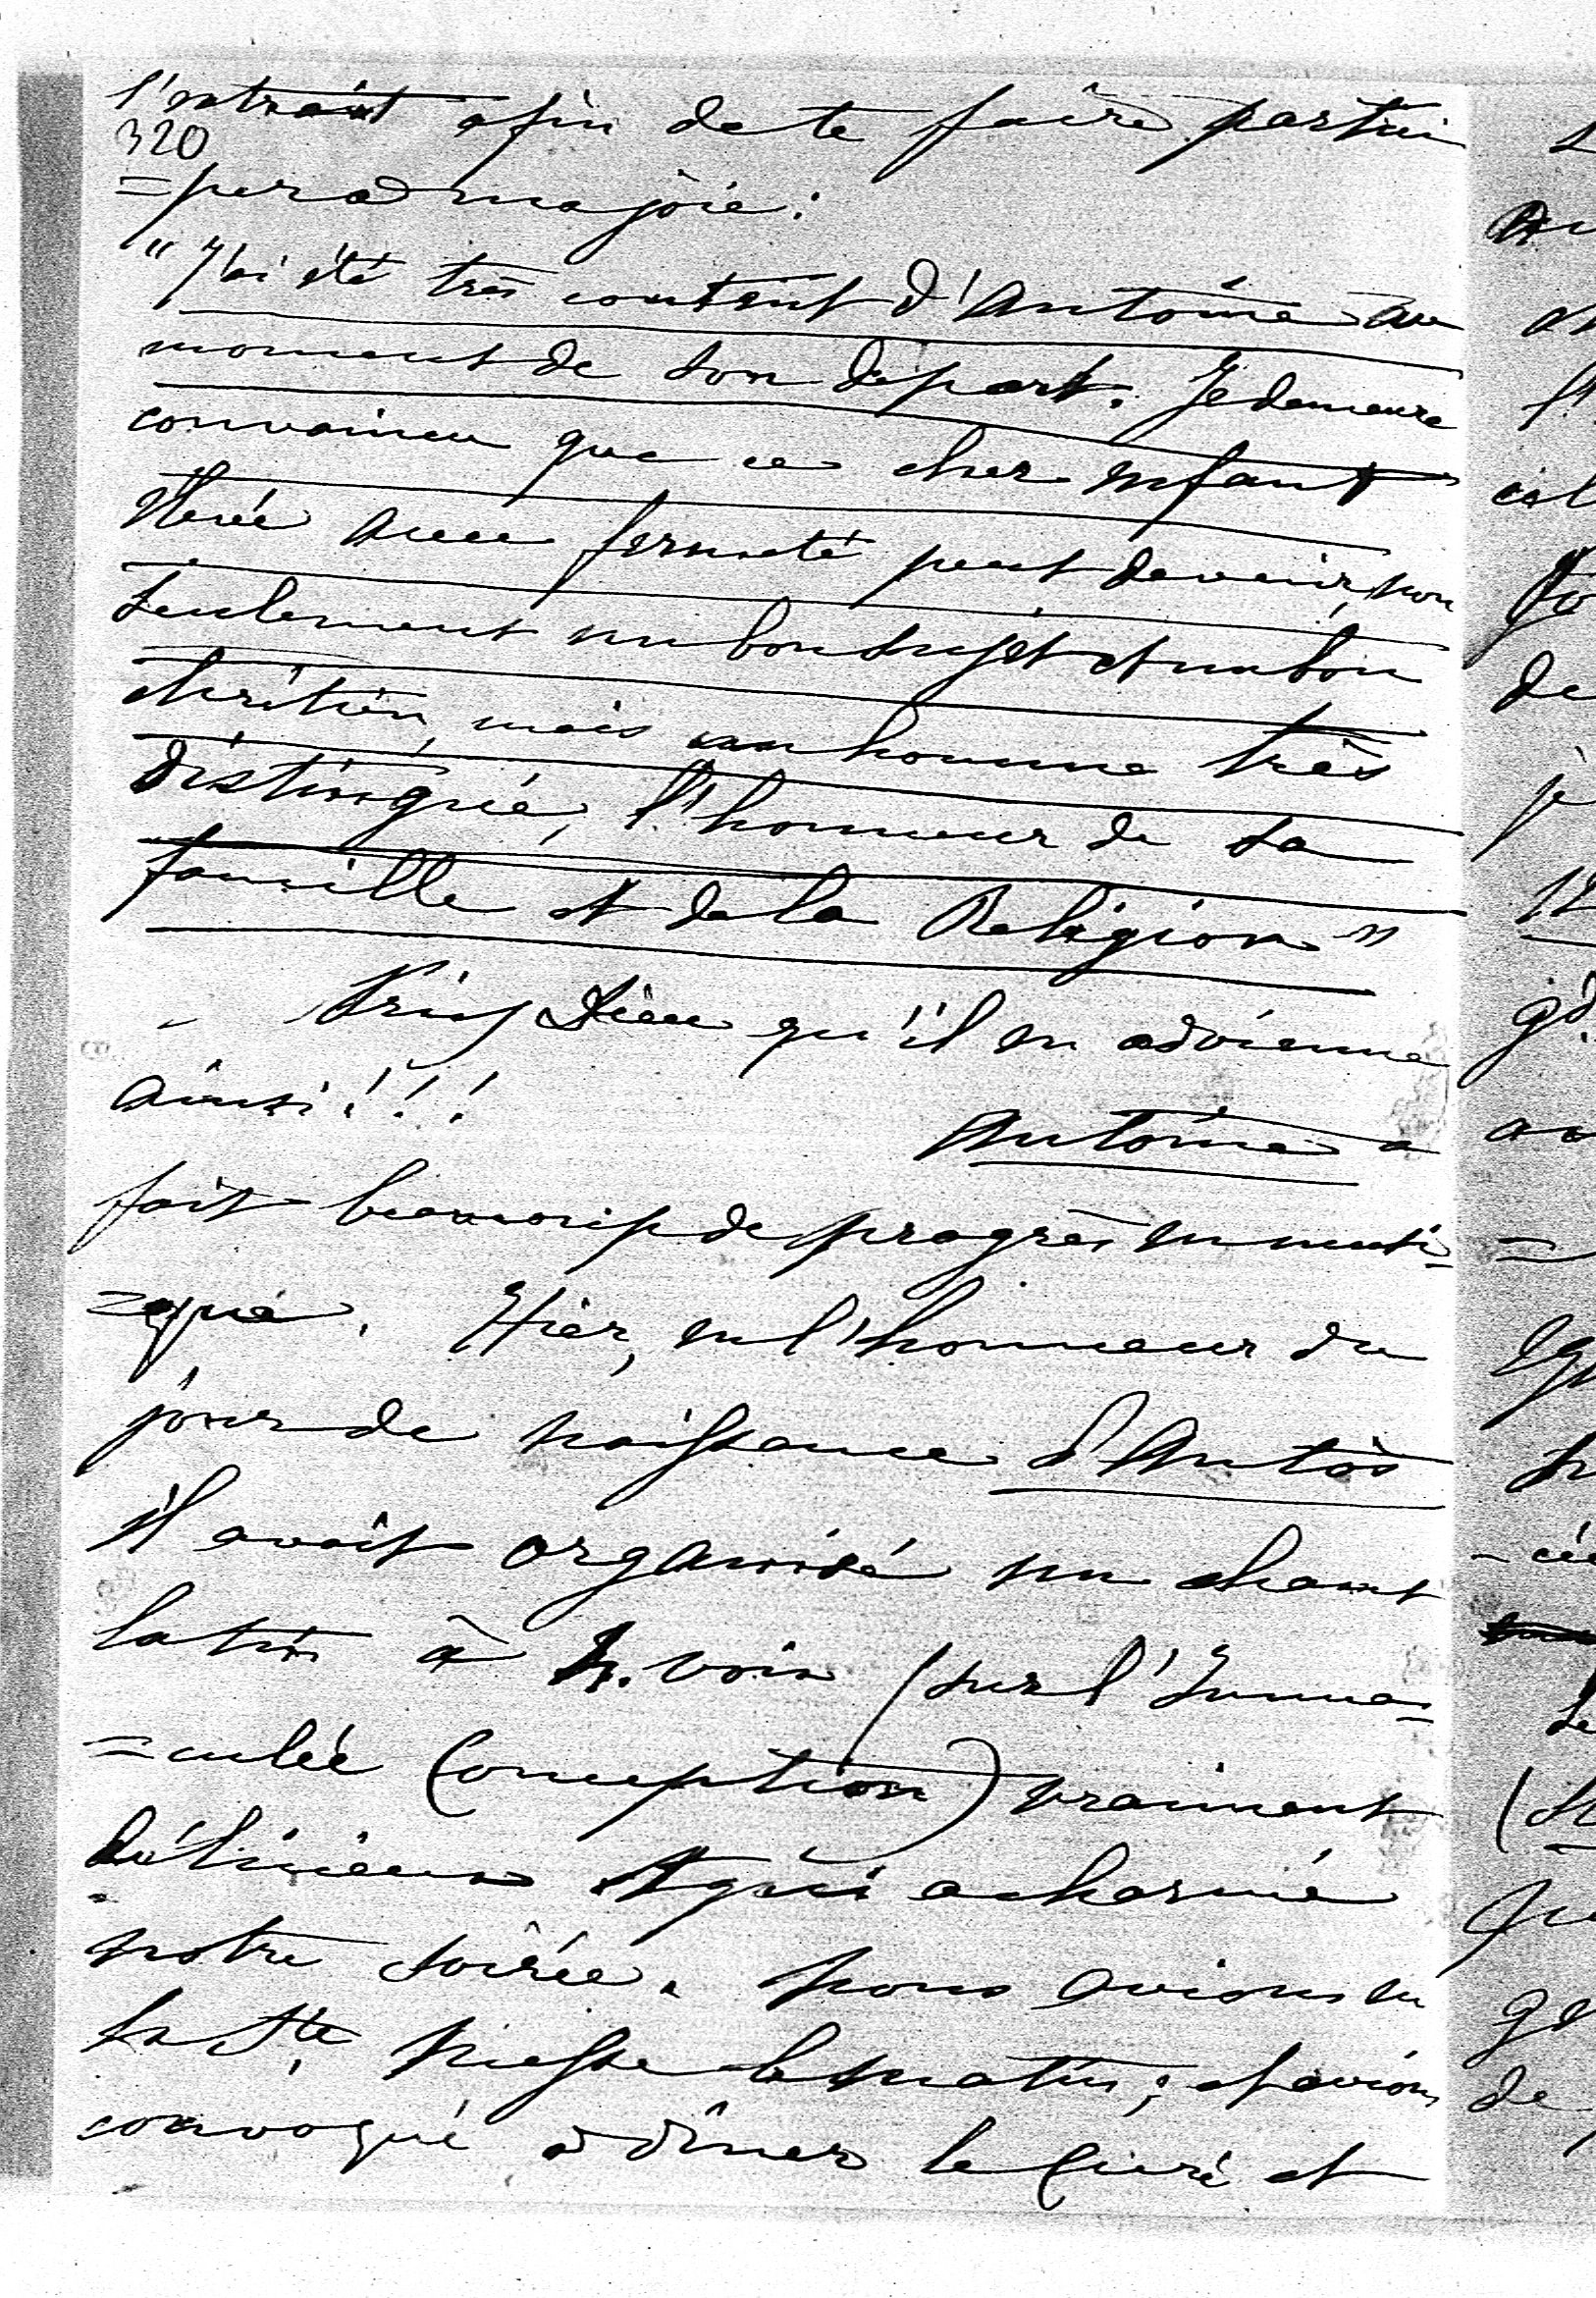 l'extrait afin de te faire partici
320
=per à ma joie :
"J'ai été très content d'Antoine au
moment de son départ. Je demeure
convaincu que ce cher enfant
élevé avec fermeté peut devenir, non
seulement un bon sujet et un bon
chrétien, mais un homme très
distingué, l'honneur de sa
famille et de la Religion"
Dieu qu'il en advienne
ainsi!!!
Antoine a
fait beaucoup de progrès en musi=
=que. Hier, en l'honneur du
jour de naissance d'
il avait organisé un chant
latin à 4. voix (sur l'Imma=
=culée Conception) vraiment
délicieux et qui a charmé
notre soirée. Nous avions eu
la Ste Messe le matin ; et avions
convoqué à dîner le Curé et